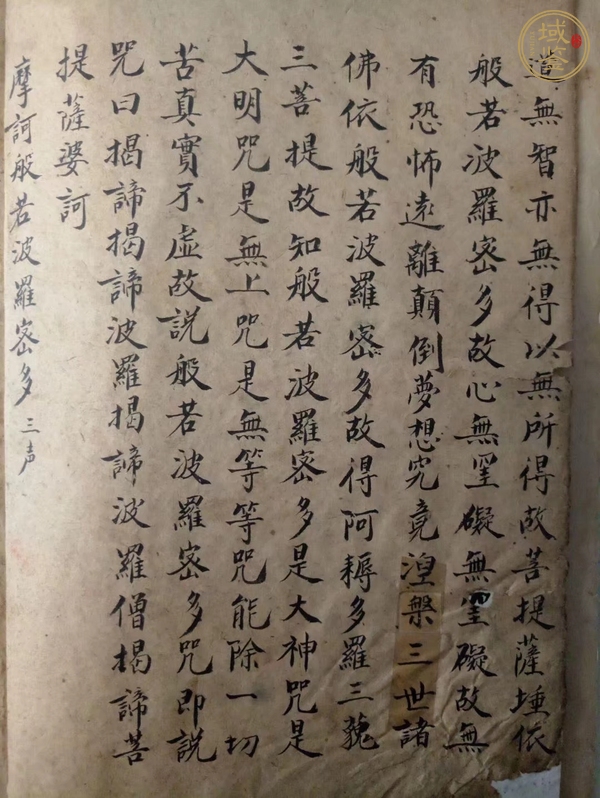 道無智亦無得以無所得故菩提薩埵依
般若波羅密多故心無罣礙無罣礙故無
有恐怖遠離顛倒夢想究竟涅槃三世諸
佛依般若波羅密多故得阿耨多羅三藐
三菩提故知般若波羅密多是大神咒是
大明咒是無上咒是無等等咒能除一切
苦真實不虛故說般若波羅密多咒即說
咒曰揭諦揭諦波羅揭諦波羅僧揭諦菩
提薩婆訶
摩訶般若波羅密多 三声
域鉴